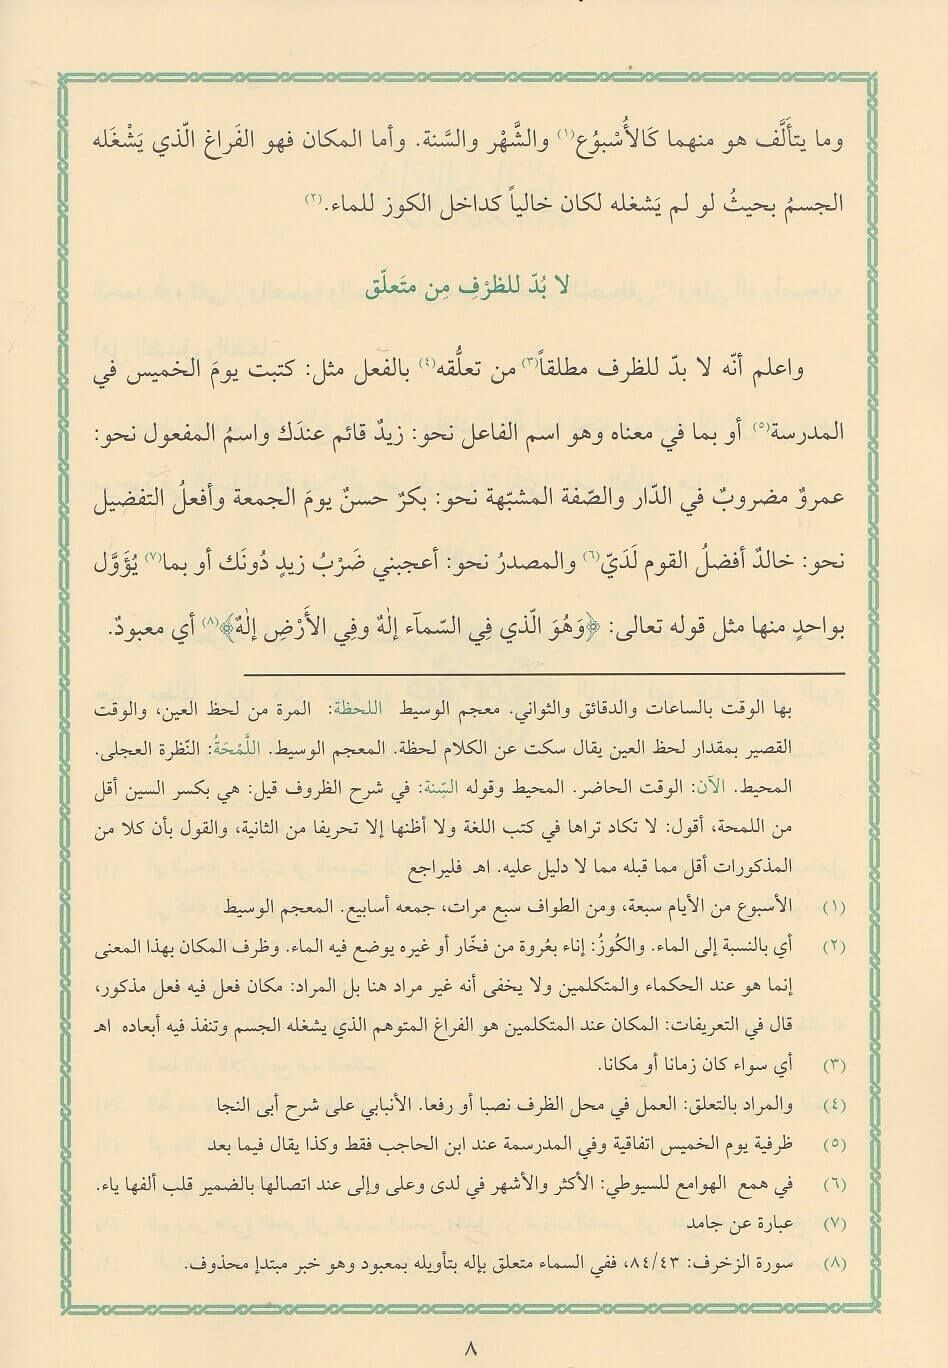 وما يتألَّف هو منهما كَالأُسْبوُع(١) والشَّهْر والسَّنة. وأما المكان فهو الفَراغ الّذي يَشْغَله
الجسمُ بحيثُ لو لم يَشغله لكان خالياً كداخل الكوز للماء.(٢)
لا بُدّ للظرْفِ مِن متَعلّق
واعلم أنّه لا بدّ للظرف مطلقاً(٣) من تعلُّقه(٤) بالفعل مثل: كتبت يومَ الخميس في
المدرسة(٥) أو بما في معناه وهو اسم الفاعل نحو: زيدٌ قائم عندَك واسمُ المفعول نحو:
عمروٌ مضروبٌ في الدّار والصّفة المشبّهة نحو: بكرٌ حسنٌ يومَ الجمعة وأفعلُ التفضيل
نحو: خالدٌ أفضلُ القوم لَدَيّ(٦) والمصدرُ نحو: أعجبني ضَرْبُ زيدٍ دُونَك أو بما(٧) يُؤَوَّل
بواحدٍ منها مثل قوله تعالى: ﴿وَهُوَ الّذي فِي السّمآء إلٰهٌ وفِي الأَرْضِ إلٰهٌ﴾(٨) أي معبودٌ.
بها الوقت بالساعات والدقائق والثواني. معجم الوسيط اللحظة: المرة من لحظ العين، والوقت
القصير بمقدار لحظ العين يقال سكت عن الكلام لحظة. المعجم الوسيط. اللَّمْحَةُ: النّظرة العجلى.
المحيط. الآن: الوقت الحاضر. المحيط وقوله السِّنة: في شرح الظروف قيل: هي بكسر السين أقل
من اللمحة، أقول: لا تكاد تراها في كتب اللغة ولا أظنها إلا تحريفا من الثانية، والقول بأن كلا من
المذكورات أقل مما قبله مما لا دليل عليه. اهـ فليراجع
(١) الأسبوع من الأيام سبعة، ومن الطواف سبع مرات، جمعه أسابيع. المعجم الوسيط
(٢) أي بالنسبة إلى الماء. والكُوزُ: إناء بعُروة من فخّار أو غيره يوضع فيه الماء. وظرف المكان بهذا المعنى
إنما هو عند الحكماء والمتكلمين ولا يخفى أنه غير مراد هنا بل المراد: مكان فعل فيه فعل مذكور،
قال في التعريفات: المكان عند المتكلمين هو الفراغ المتوهم الذي يشغله الجسم وتنفذ فيه أبعاده اهـ
(٣) أي سواء كان زمانا أو مكانا.
(٤) والمراد بالتعلق: العمل في محل الظرف نصبا أو رفعا. الأنبابي على شرح أبى النجا
(٥) ظرفية يوم الخميس اتفاقية وفي المدرسمة عند ابن الحاجب فقط وكذا يقال فيما بعد
(٦) في همع الهوامع للسيوطي: الأكثر والأشهر في لدى وعلى وإلى عند اتصالها بالضمير قلب ألفها ياء.
(٧) عبارة عن جامد
(٨) سورة الزخرف: ٨٤/٤٣، ففي السماء متعلق بإله بتأويله بمعبود وهو خبر مبتدإ محذوف.
٨